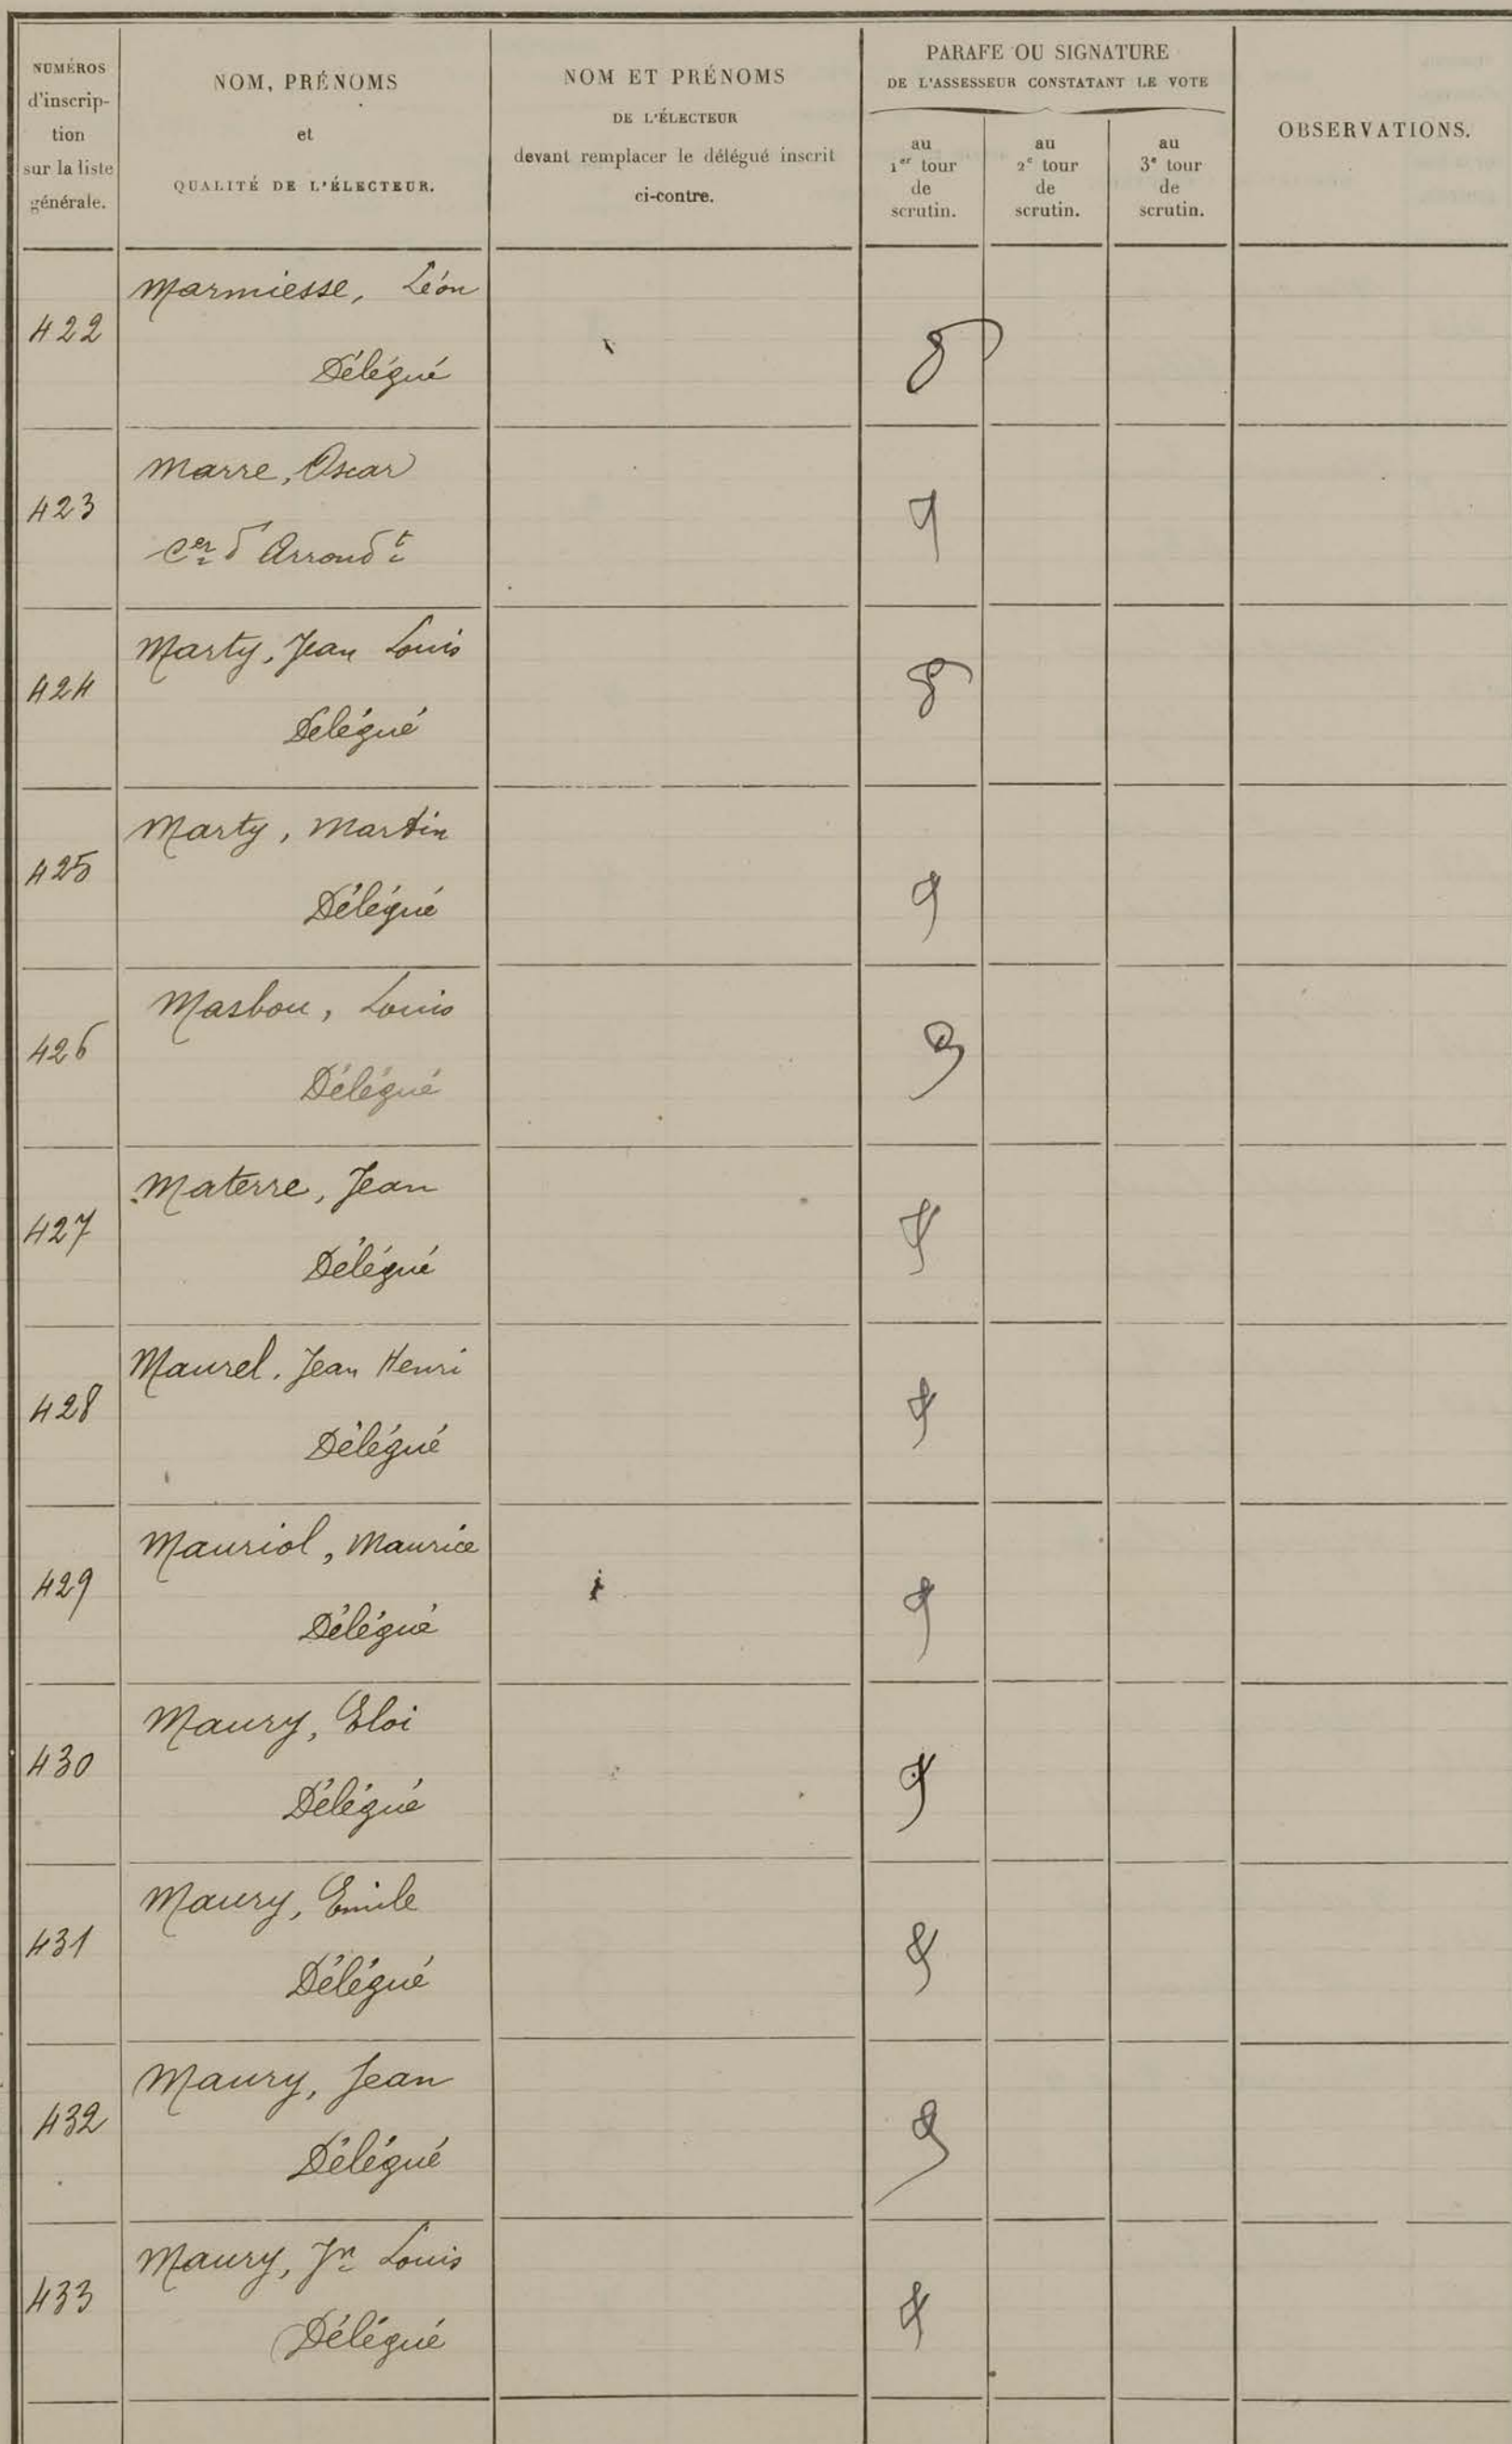 NUMÉROS
d'inscrip-
tion
sur la liste
générale.
NOM, PRÉNOMS
et
QUALITÉ DE L'ÉLECTEUR.
NOM ET PRÉNOMS
DE L'ÉLECTEUR
devant remplacer le délégué inscrit
ci-contre.
PARAFE OU SIGNATURE
DE L'ASSESSEUR CONSTATANT LE VOTE
au
1er tour
de
scrutin.
au
2e tour
de
scrutin.
au
3e tour
de
scrutin.
OBSERVATIONS.
422
Marmiesse, Léon
Délégué
423
Marre, Oscar
Cer d'Arrondt
424
Marty, Jean Louis
Délégué
425
Marty, Martin
Délégué
426
Masbou, Louis
Délégué
427
Materre, Jean
Délégué
428
Maurel, Jean Henri
Délégué
429
Mauriol, Maurice
Délégué
430
Maury, Eloi
Délégué
431
Maury, Emile
Délégué
432
Maury, Jean
Délégué
433
Maury, Jn Louis
Délégué